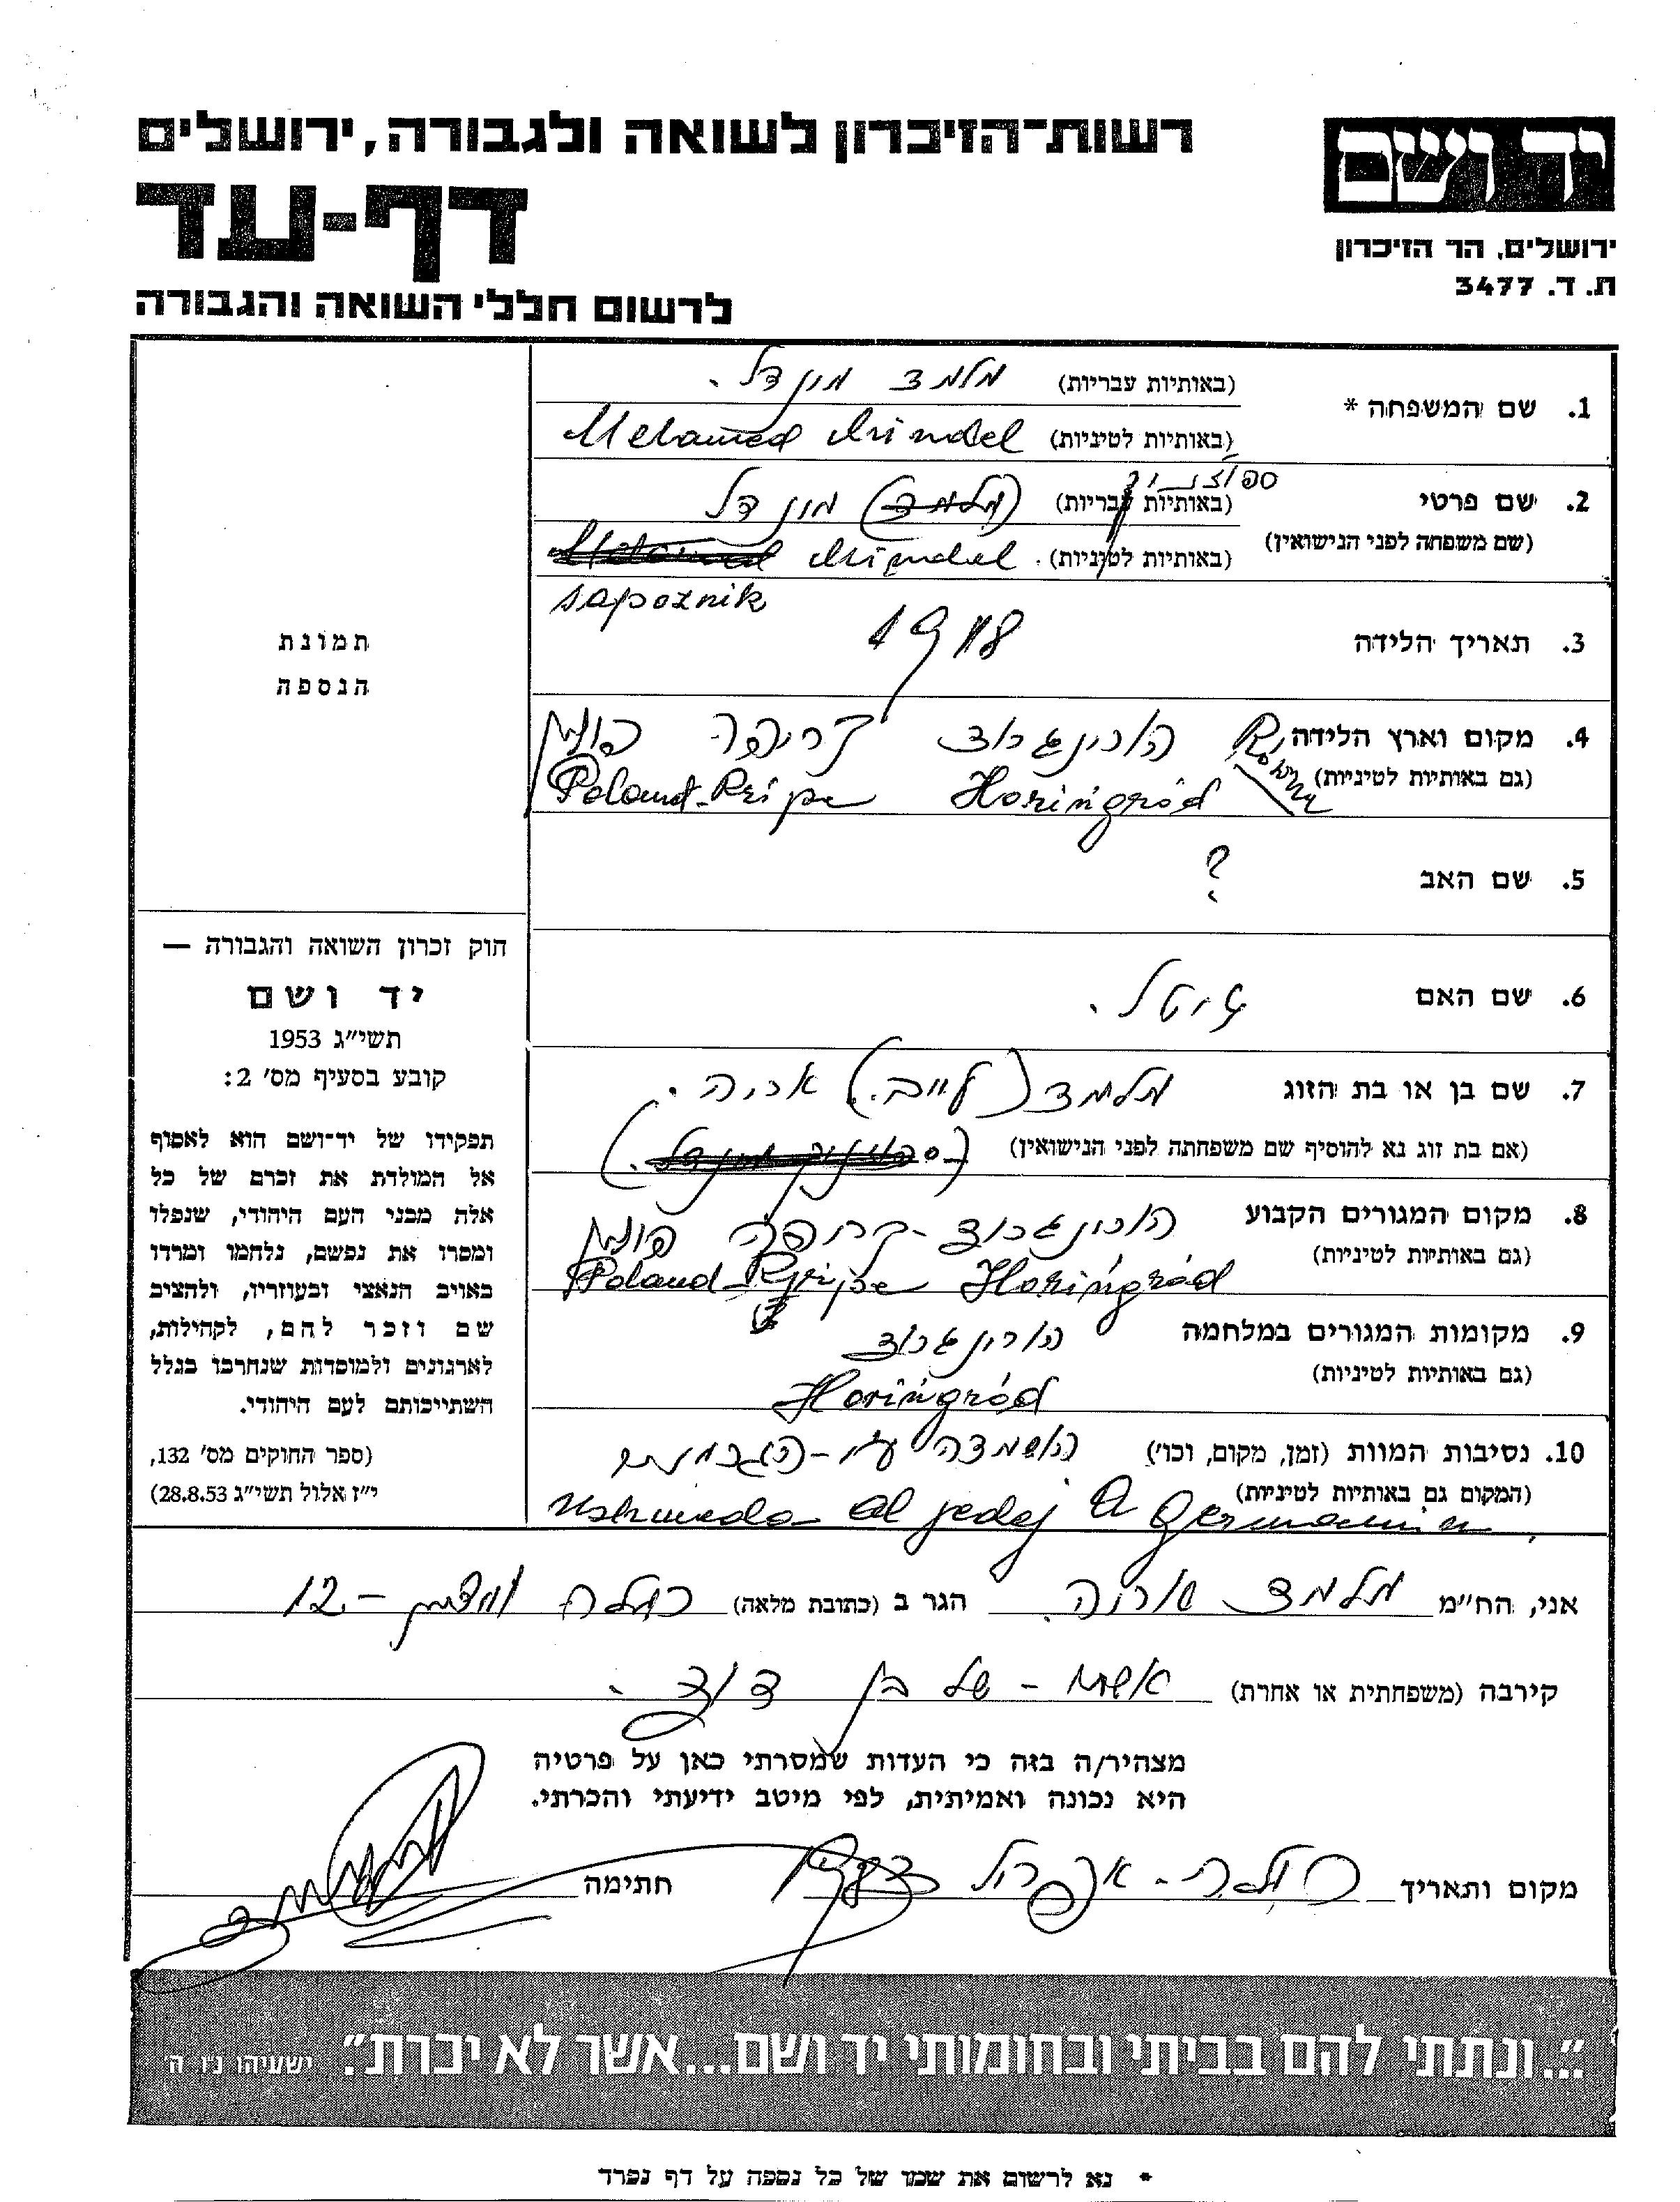 רשות־הזיכרון לשואה ולגבורה, ירושלים
יד ושם
דף-עד
ירושלים, הר הזיכרון
ת. ד. 3477
לרשום חללי השואה והגבורה
1. שם המשפחה * (באותיות עבריות) מלמד מינדל.
(באותיות לטיניות) Melamed Mindel
2. שם פרטי (באותיות עבריות) (מלמד) מינדל
(שם משפחה לפני הנישואין) (באותיות לטיניות) Melamed Mindel.
sapoznik
3. תאריך הלידה 1918
4. מקום וארץ הלידה Rowne הורינגרוד קריפה פולין
(גם באותיות לטיניות) Horińgród Poland
5. שם האב ?
6. שם האם גיטל.
7. שם בן או בת הזוג מלמד (לייב.) אריה.
(אם בת זוג נא להוסיף שם משפחתה לפני הנישואין)
8. מקום המגורים הקבוע הורינגרוד-קריפה פולין
(גם באותיות לטיניות) Horińgród Poland
9. מקומות המגורים במלחמה הורינגרוד
(גם באותיות לטיניות) Horińgród
10. נסיבות המוות (זמן, מקום, וכו') הושמדה ע"י-הגרמנים
(המקום גם באותיות לטיניות) al jedej A Germanim
תמונת
הנספה
חוק זכרון השואה והגבורה —
יד ושם
תשי״ג 1953
קובע בסעיף מס' 2:
תפקידו של יד־ושם הוא לאסוף
אל המולדת את זכרם של כל
אלה מבני העם היהודי, שנפלו
ומסרו את נפשם, נלחמו ומרדו
באויב הנאצי ובעוזריו, ולהציב
שם וזכר להם, לקהילות,
לארגונים ולמוסדות שנחרבו בגלל
השתייכותם לעם היהודי.
(ספר החוקים מס' 132,
י״ז אלול תשי״ג 28.8.53)
אני, הח״מ מלמד שרה. הגר ב (כתובת מלאה) רמלה 12
קירבה (משפחתית או אחרת) אשתו - של בן דוד.
מצהיר/ה בזה כי העדות שמסרתי כאן על פרטיה
היא נכונה ואמיתית, לפי מיטב ידיעתי והכרתי.
מקום ותאריך רמלה - אפריל חתימה
"...ונתתי להם בביתי ובחומותי יד ושם...אשר לא יכרת". ישעיהו נ״ו ה'
* נא לרשום את שמו של כל נספה על דף נפרד